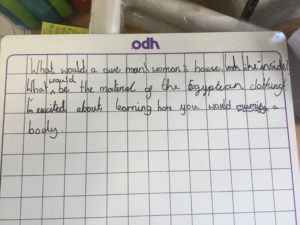 odh
What would a cave man\woman's house look like inside?
What would be the material of the Egyptian clothing?
I'm excited about learning how you would mummify a
body.